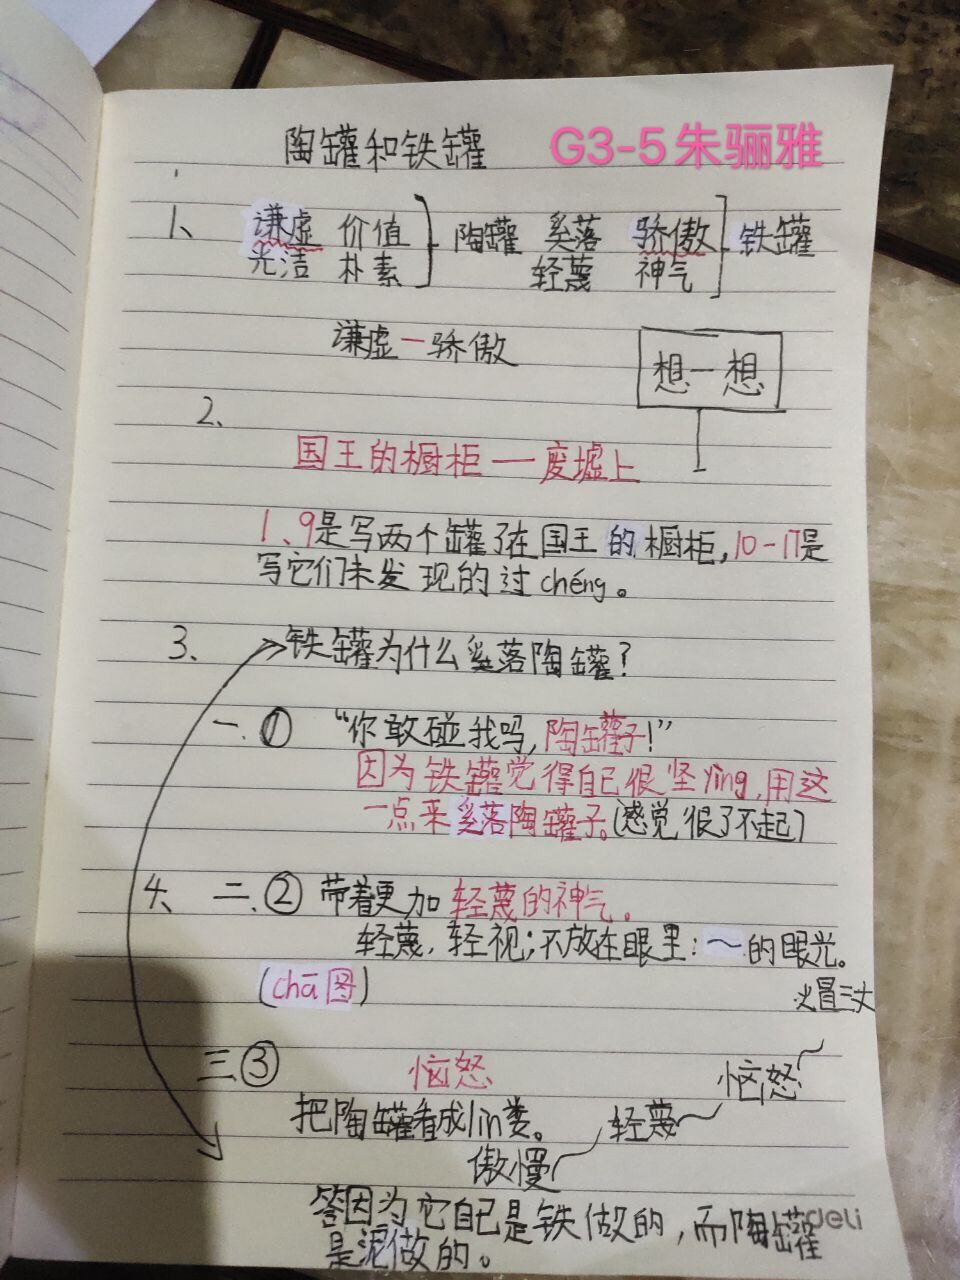 陶罐和铁罐
G3-5朱骊雅
1、 谦虚 价值 陶罐 奚落 骄傲 铁罐
光洁 朴素 轻蔑 神气
谦虚一骄傲
想一想
2、
国王的橱柜一废墟上
1、9是写两个罐子在国王的橱柜,10-17是
写它们未发现的过chéng。
3、 铁罐为什么奚落陶罐?
一.① “你敢碰我吗,陶罐子!”
因为铁罐觉得自己很坚yìng,用这
一点来奚落陶罐子。(感觉很了不起)
4、 二.② 带着更加轻蔑的神气。
轻蔑,轻视;不放在眼里:~的眼光。
(chā图)
火冒三丈
三③ 恼怒
恼怒
把陶罐看成lìn娄。
轻蔑
傲慢
答因为它自己是铁做的,而陶罐
是泥做的。
deli